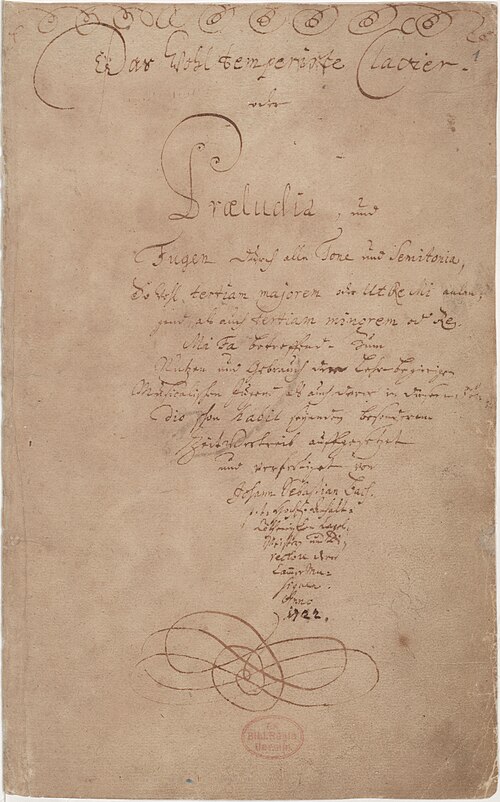 Das Wohl temperirte Clavier.
oder
Præludia, und
Fugen durch alle Tone und Semitonia,
So wohl tertiam majorem oder Ut Re Mi anlan-
gend, als auch tertiam minorem oder Re
Mi Fa betreffend. Zum
Nutzen und Gebrauch der Lehr-begierigen
Musicalischen Jugend, als auch derer in diesem stu-
dio schon habil seyenden besonderem
Zeitvertreib auffgesetzet
und verfertiget von
Johann Sebastian Bach.
p. t. Hochfürstl. Anhalt-
Cöthenischen Capel-
Meistern und Di-
rectore derer
Cammer Mu-
siquen.
Anno
1722.
1
Ex
Bibl. Regia
Berolin.